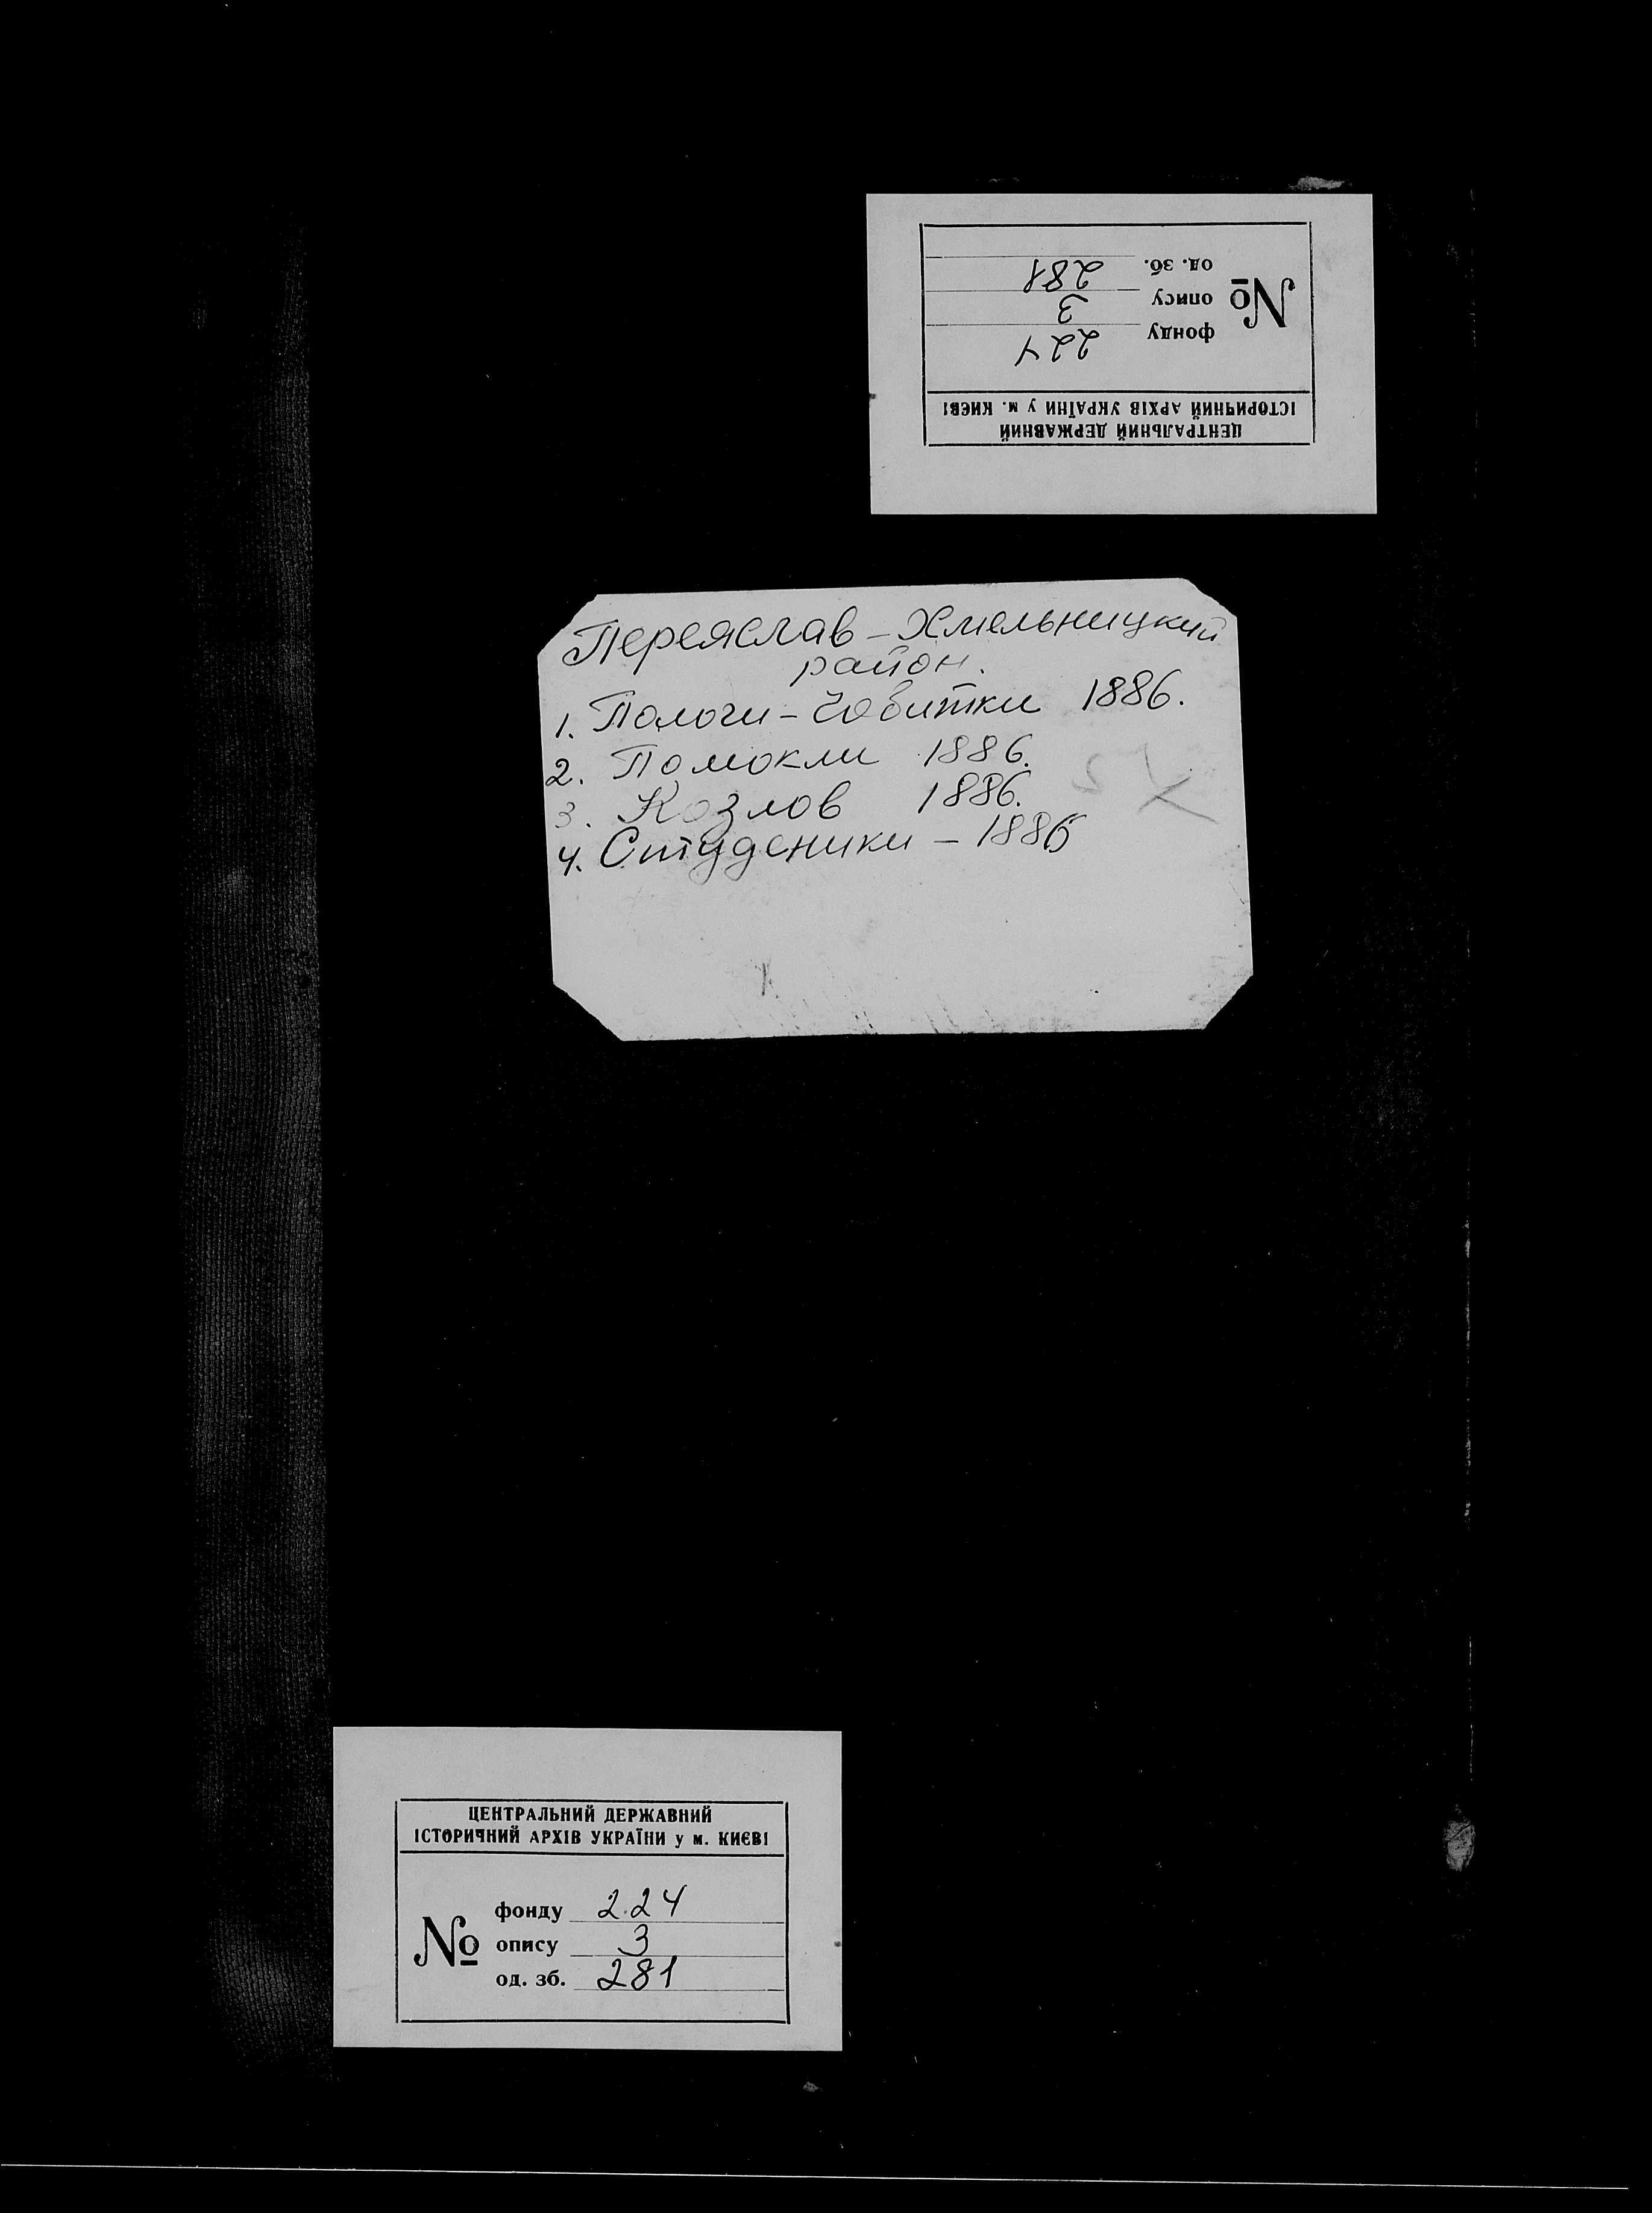 ЦЕНТРАЛЬНИЙ ДЕРЖАВНИЙ
ІСТОРИЧНИЙ АРХІВ УКРАЇНИ у м. КИЄВІ
№
фонду 224
опису 3
од. зб. 281
Переяслав-Хмельницкий
район.
1. Пологи-Чобитки 1886.
2. Помокли 1886.
3. Козлов 1886.
4. Студеники - 1886
ЦЕНТРАЛЬНИЙ ДЕРЖАВНИЙ
ІСТОРИЧНИЙ АРХІВ УКРАЇНИ у м. КИЄВІ
№
фонду 224
опису 3
од. зб. 281